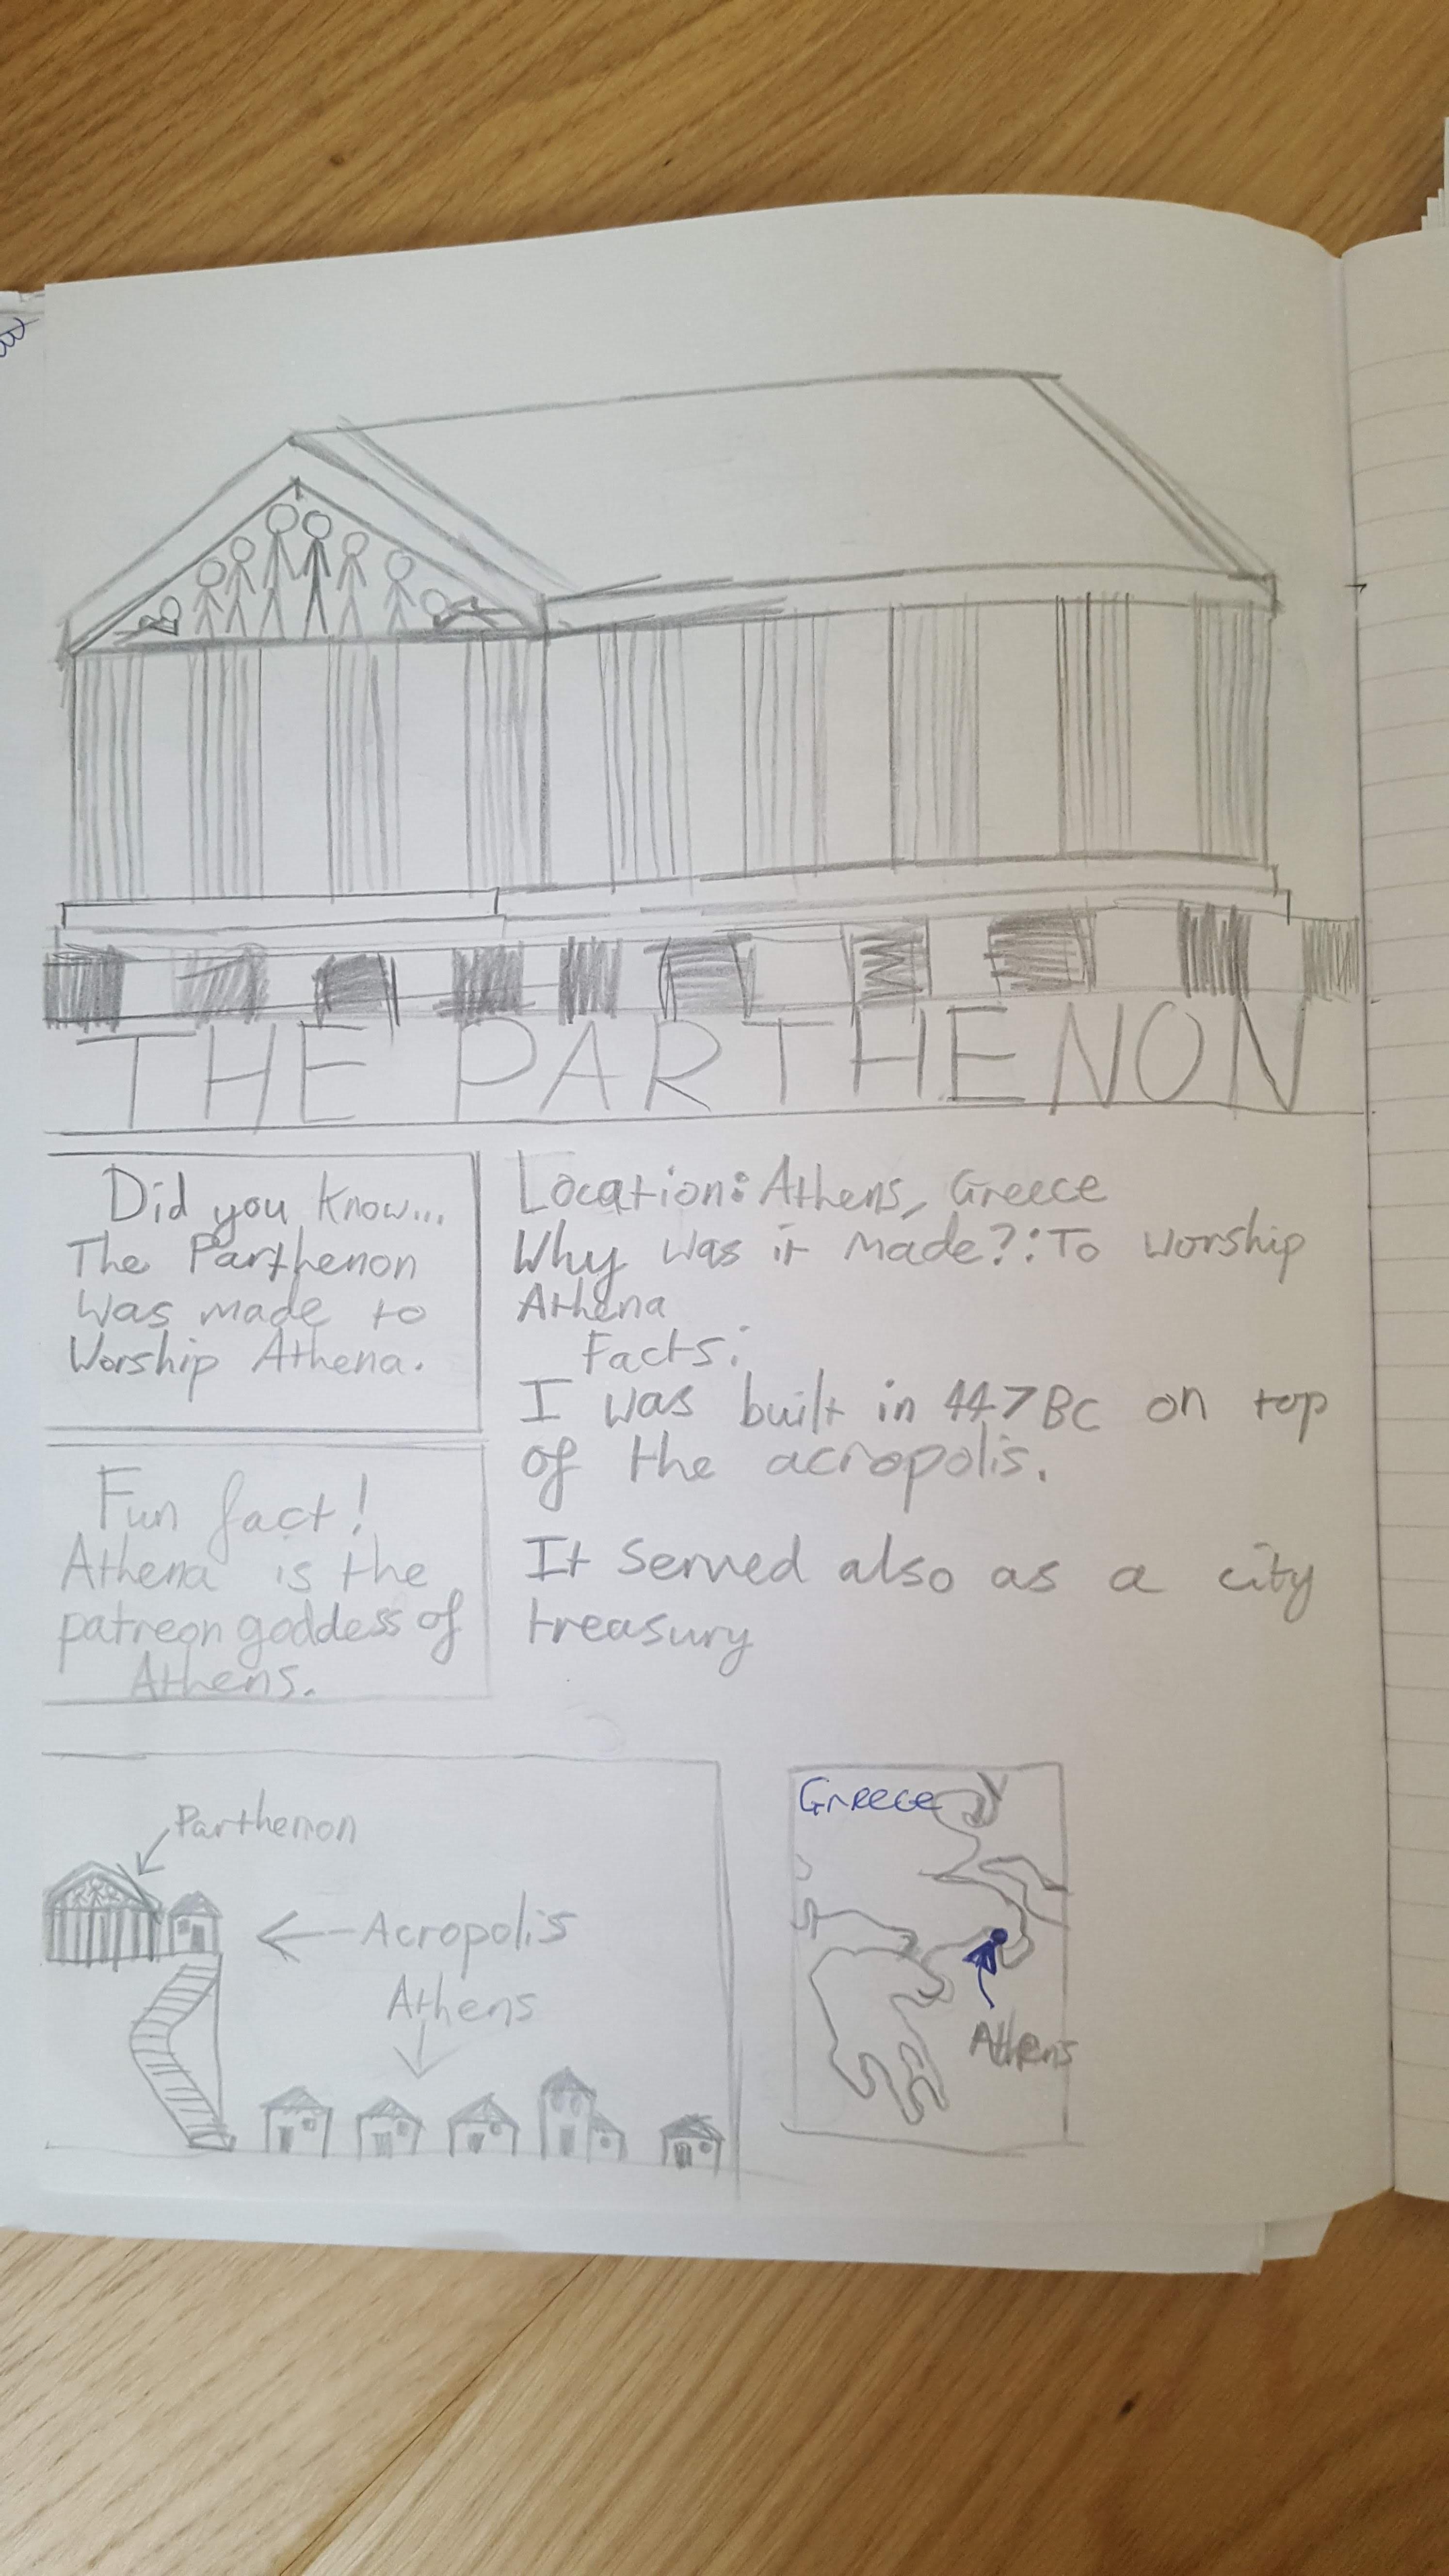 THE PARTHENON
Did you know...
The Parthenon
was made to
Worship Athena.
Fun fact!
Athena is the
patreon goddess of
Athens.
Location: Athens, Greece
Why was it made?: To worship
Athena
Facts:
I was built in 447 BC on top
of the acropolis.
It served also as a city
treasury
Parthenon
Acropolis
Athens
Greece
Athens